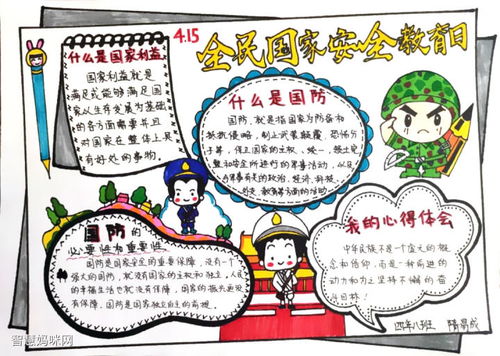 4.15
全民国家安全教育日
什么是国家利益
国家利益就是
满足或能够满足国
家以生存发展为基础
的各方面需要并且
对国家在整体上具
有好处的事物。
什么是国防
国防,就是指国家为防备和
抵抗侵略,制止武装颠覆,恐怖分
子等,保卫国家的主权、统一、领土完
整和安全所进行的军事活动,以及
与军事有关的政治、经济、科技、
外交、教育等方面的活动。
国防的
必要性和重要性
国防是国家安全的重要保障,没有一个
强大的国防,就没有国家的主权和独立,人民
的幸福生活也就没有保障,国家的振兴更没
有保障,国防是国家独立自主的前提。
我的心得体会
中华民族不是一个虚无的概
念和信仰,而是一种前进的
动力和为之坚持不懈的奋
斗目标!
四年八班
隋昌成
智慧妈咪网